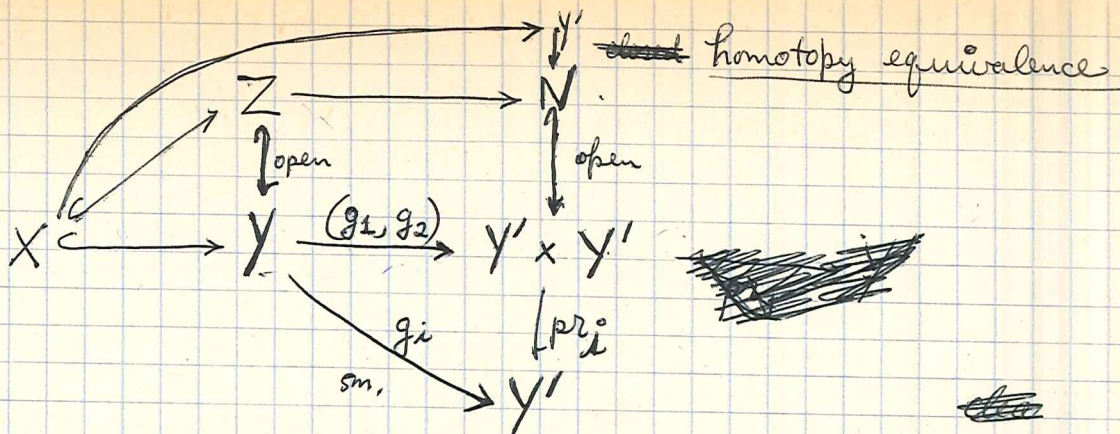 Y'
homotopy equivalence
Z N
open open
X Y (g1, g2) Y' × Y'
gi pri
sm.
Y'